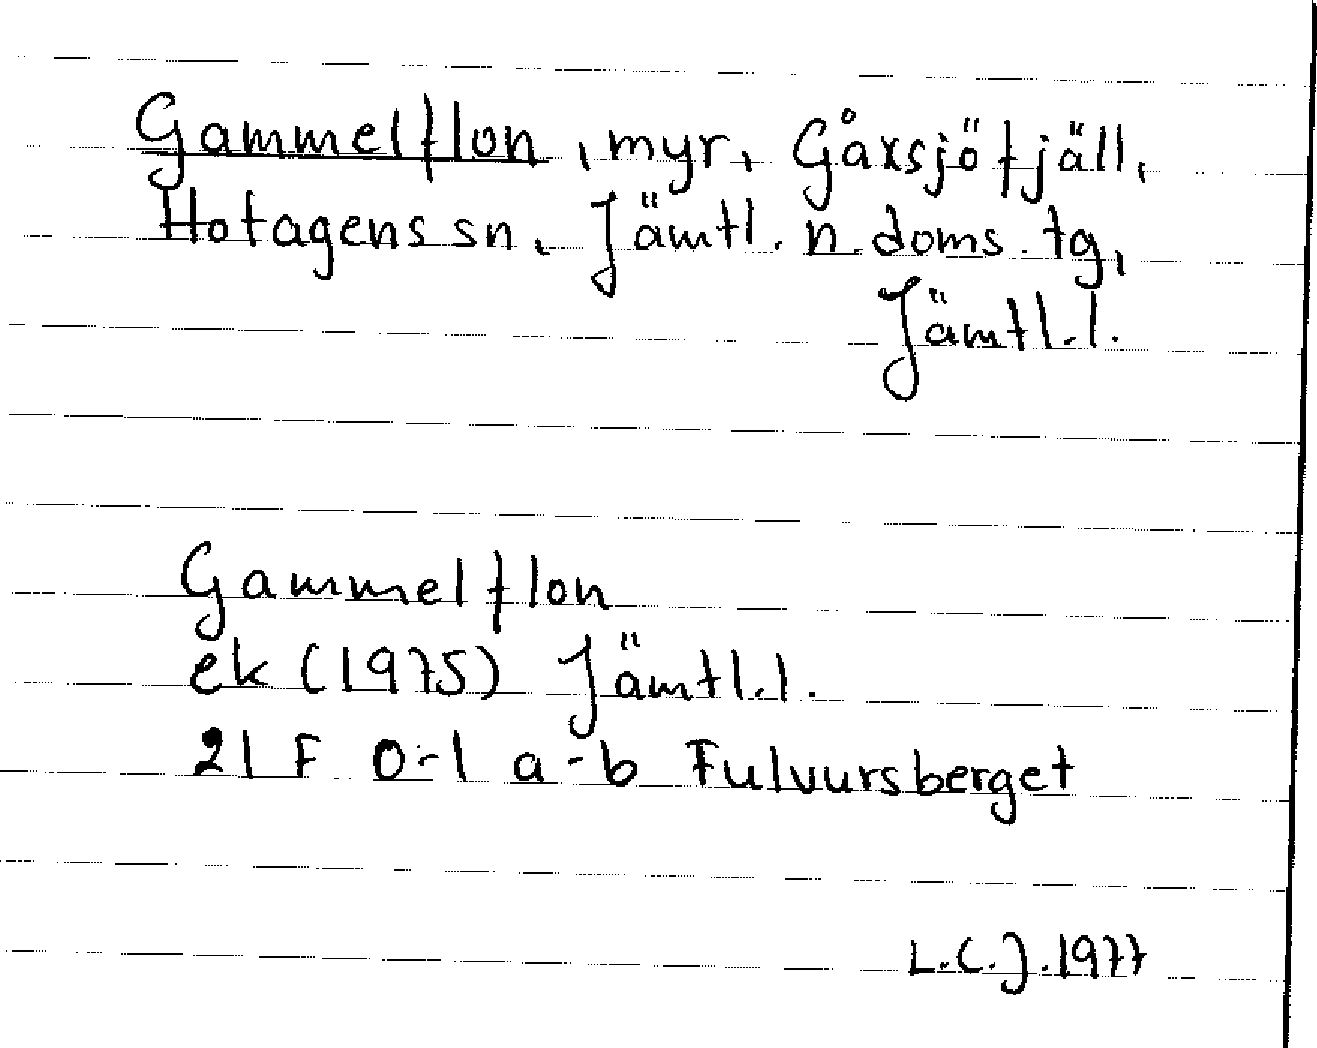 Gammelflon, myr, Gåxsjöfjäll,
Hotagens sn, Jämtl. n. doms. tg,
Jämtl. l.
Gammelflon
ek (1975) Jämtl. l.
21 F 0-1 a-b Fulvursberget
L.C.J. 1977